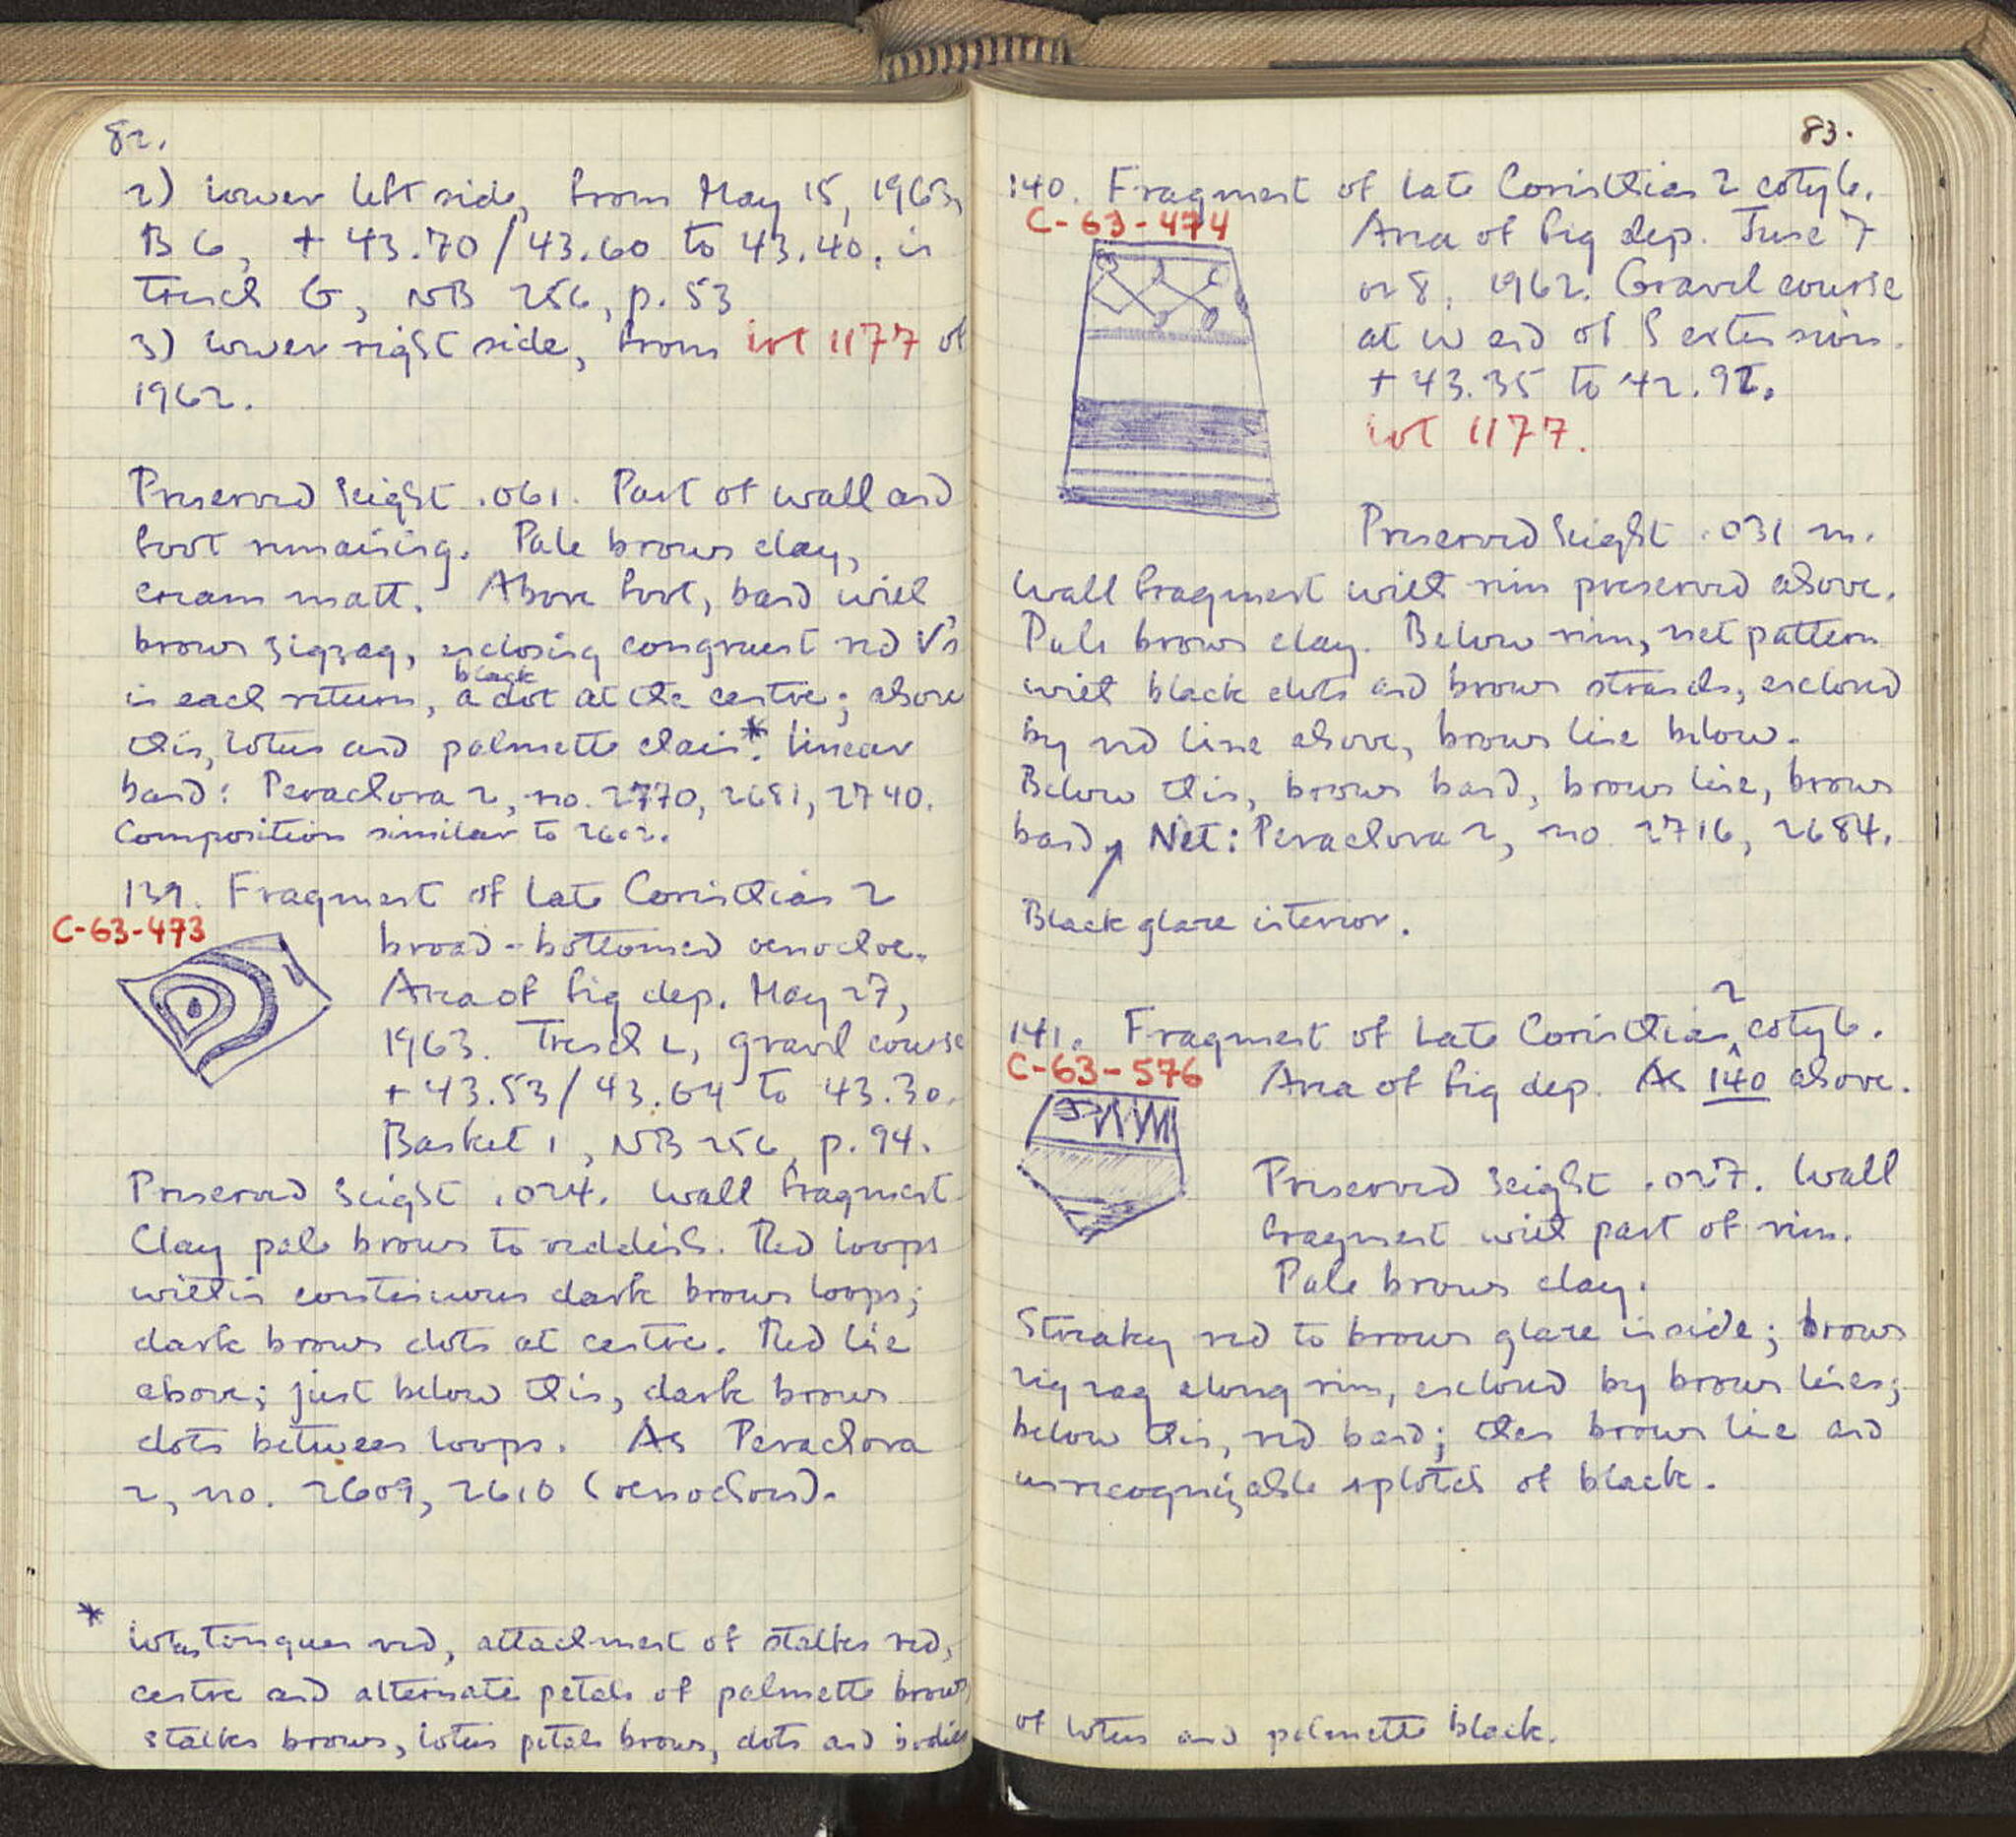 82.
2) lower left side, from May 15, 1963,
B 6, + 43.70/43.60 to 43.40, in
Trench G, NB 256, p. 53
3) lower right side, from lot 1177 of
1962.
Preserved height .061. Part of wall and
foot remaining. Pale brown clay,
cream matt. Above foot, band with
brown zigzag, enclosing congruent red V's
black
in each return, a dot at the centre; above
this, lotus and palmette chain*. Linear
band: Perachora 2, no. 2770, 2681, 2740.
Composition similar to 2602.
139. Fragment of Late Corinthian 2
C-63-473
broad-bottomed oenochoe.
Area of fig dep. May 27,
1963. Trench L, gravel course
+ 43.53/43.64 to 43.30.
Basket 1, NB 256, p. 94.
Preserved height .024. Wall fragment
Clay pale brown to reddish. Red loops
within continuous dark brown loops;
dark brown dots at centre. Red line
above; just below this, dark brown
dots between loops. As Perachora
2, no. 2609, 2610 (oenochoai).
*
Lotus tongues red, attachment of stalks red,
centre and alternate petals of palmette brown
stalks brown, lotus petals brown, dots and bodies
83.
140. Fragment of Late Corinthian 2 cotyle.
C-63-474
Area of fig dep. June 7
or 8, 1962. Gravel course
at W end of S extension.
+ 43.35 to 42.92.
lot 1177.
Preserved height .031 m.
Wall fragment with rim preserved above.
Pale brown clay. Below rim, net pattern
with black dots and brown strands, enclosed
by red line above, brown line below.
Below this, brown band, brown line, brown
band, Net: Perachora 2, no 2716, 2684.
Black glaze interior.
2
141. Fragment of Late Corinthian cotyle.
C-63-576
Area of fig dep. As 140 above.
Preserved height .027. Wall
fragment with part of rim.
Pale brown clay.
Streaky red to brown glaze inside; brown
zigzag along rim, enclosed by brown lines;
below this, red band; then brown line and
unrecognizable splotch of black.
of lotus and palmette black.